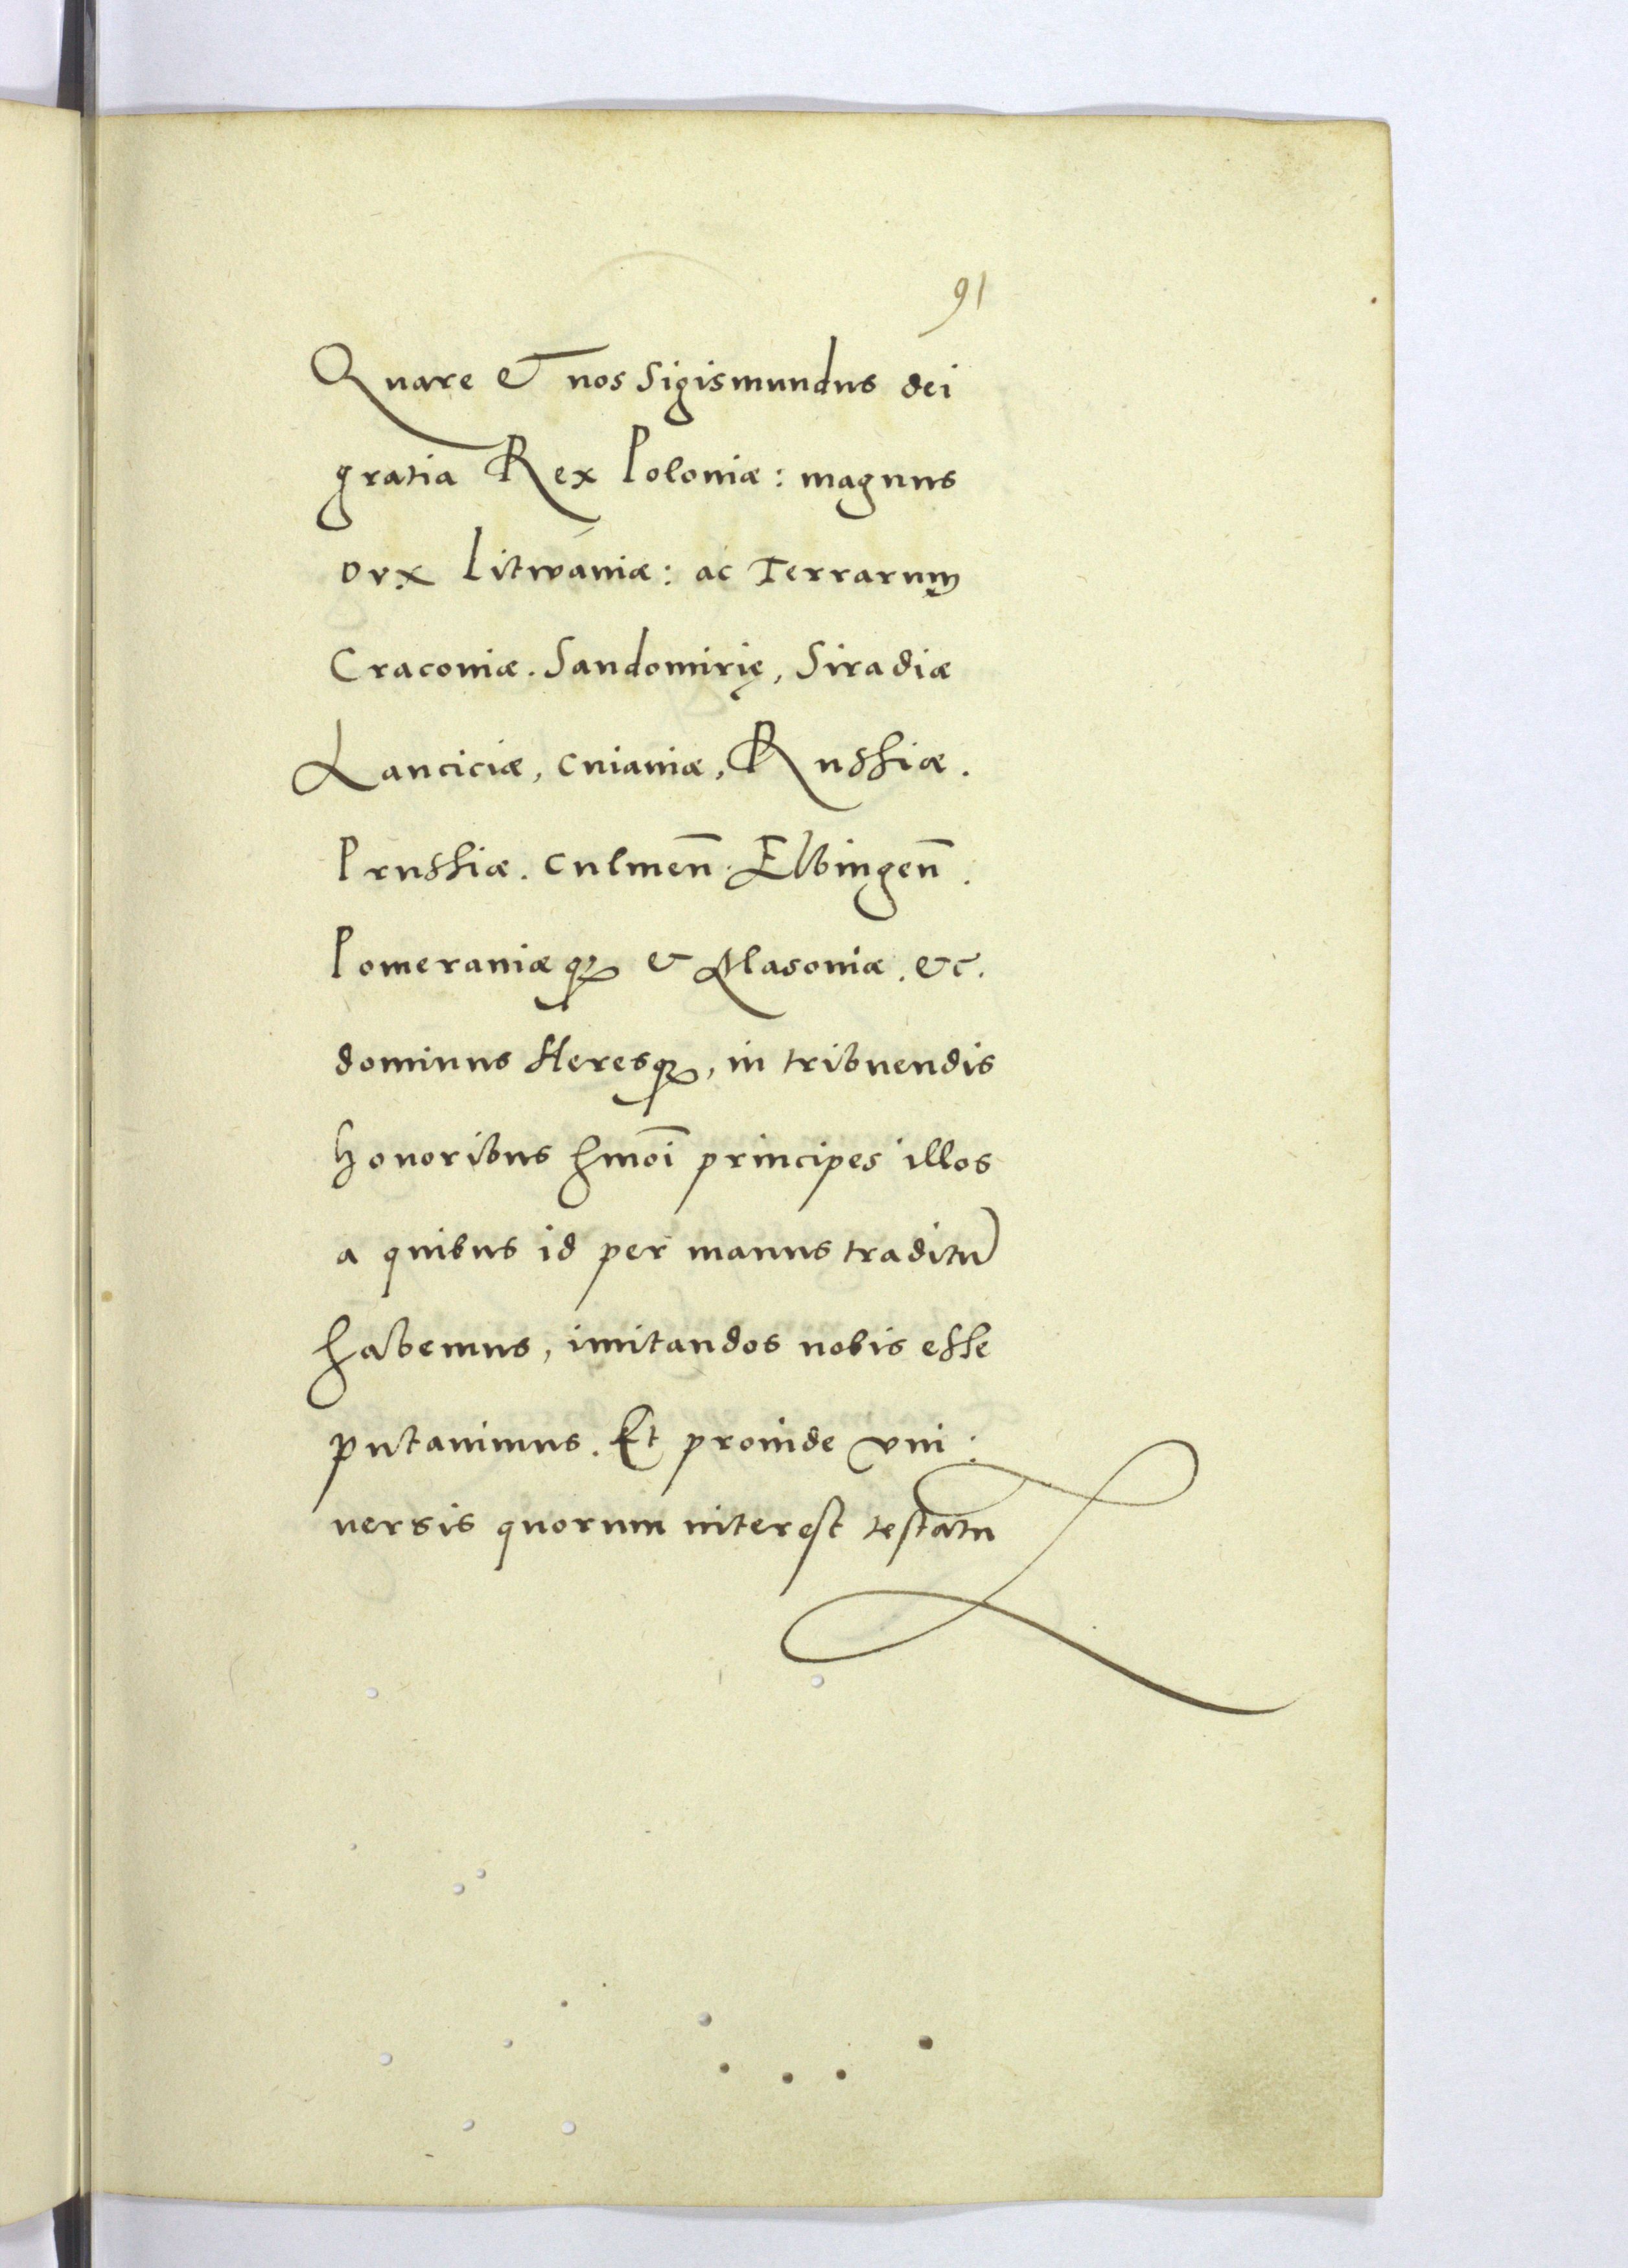 91
Quare & nos Sigismundus dei
gratia Rex Poloniæ: magnus
Dvx Litwaniæ: ac Terrarum
Cracoviæ. Sandomirię, Siradiæ
Lanciciæ, Cuiaviæ, Russiæ.
Prussiæ. Culmen̄. Elbingen̄.
Pomeraniæq₃ & Masoviæ. &c.
dominus Heresq₃, in tribuendis
honoribus hmōi principes illos
a quibus id per manus traditū
habemus, imitandos nobis esse
putavimus. Et proinde vni:
uersis quorum interest testatu